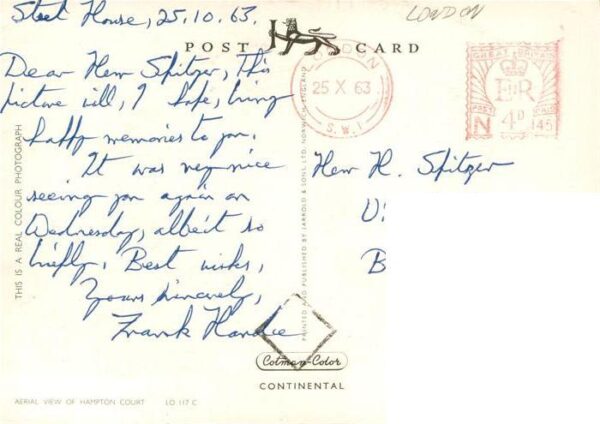 Steel House, 25.10.63.
LONDON
POST CARD
Dear Herr Spitzer, This
picture will, I hope, bring
happy memories to you.
It was very nice
seeing you again on
Wednesday, albeit so
briefly. Best wishes,
Yours sincerely,
Frank Hardie
LONDON
25 X 63
S.W.1
GREAT BRITAIN
E II R
POSTAGE PAID
N 4D 145
Herr H. Spitzer
B
THIS IS A REAL COLOUR PHOTOGRAPH
PRINTED AND PUBLISHED BY JARROLD & SONS LTD. NORWICH, ENGLAND
Cotman-Color
CONTINENTAL
AERIAL VIEW OF HAMPTON COURT LO 117 C